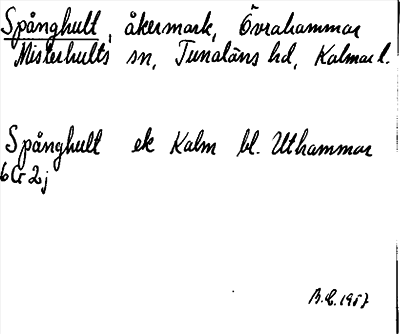 Spånghult, åkermark, Övrahammar
Misterhults sn, Tunaläns hd, Kalmar l.
Spånghult ek Kalm bl. Uthammar
6G2j
B.E. 1957